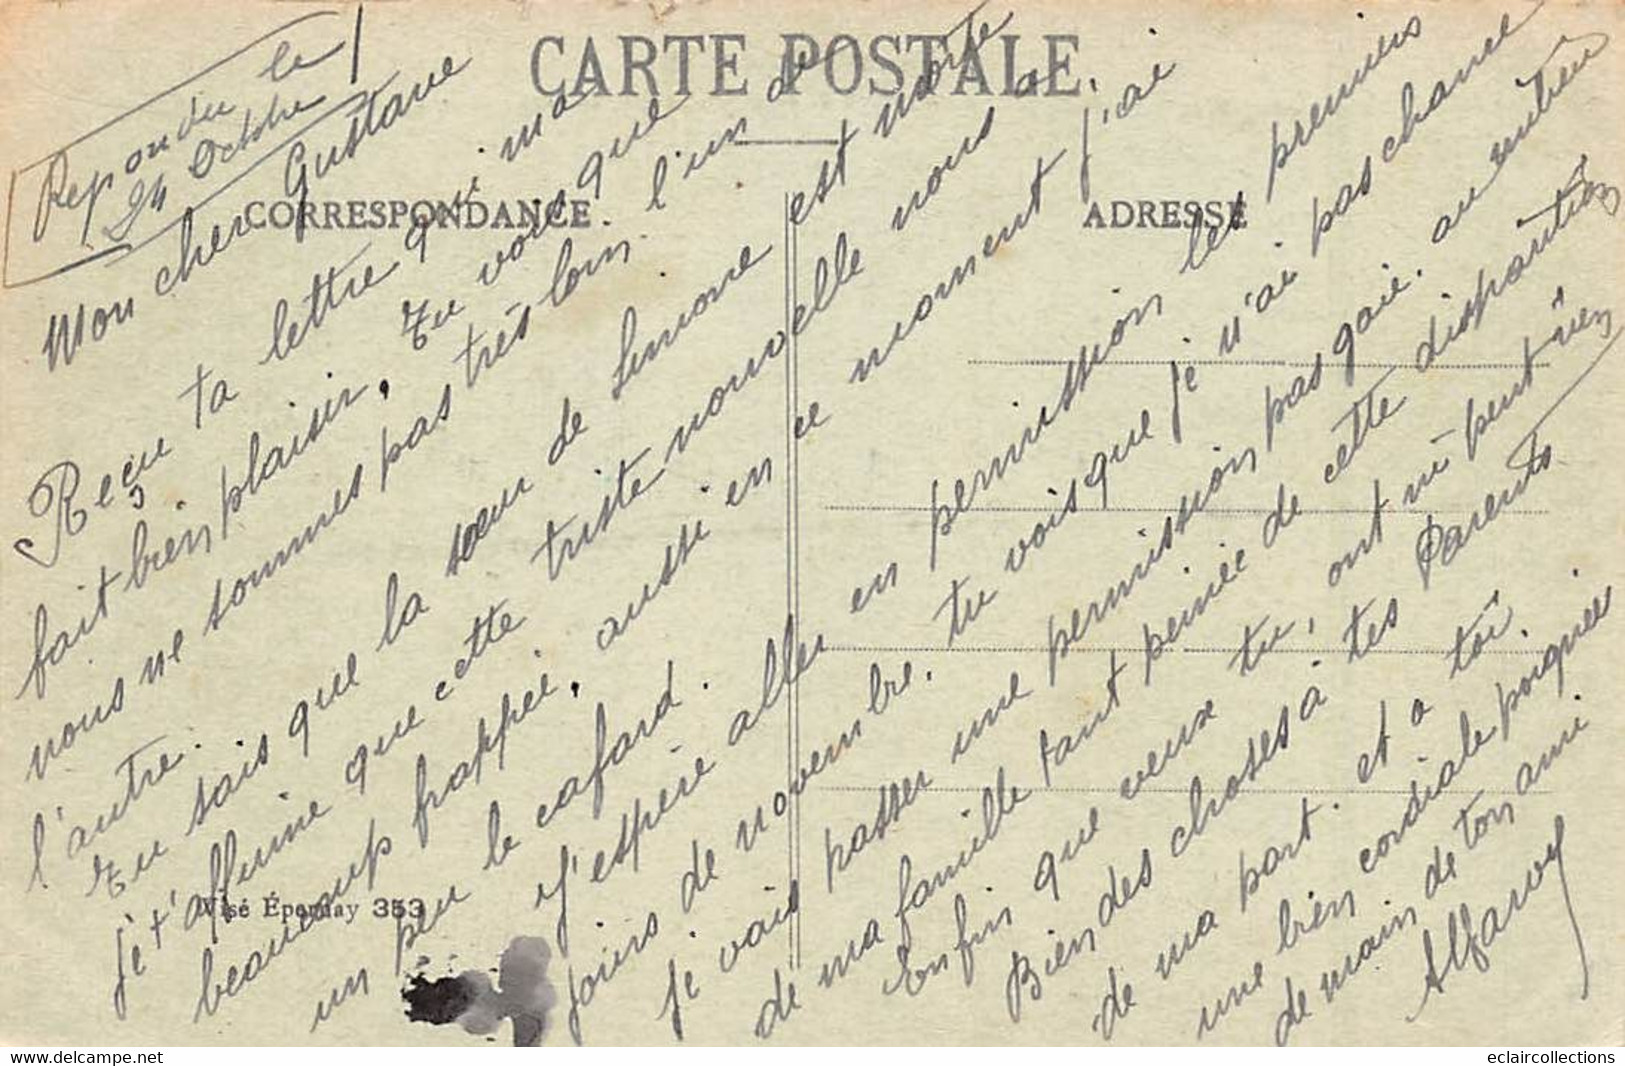 CARTE POSTALE
CORRESPONDANCE
ADRESSE
Repondu le
24 Octobre
Mon cher Gustave
Reçu ta lettre qui ma
fait bien plaisir, tu vois que
nous ne sommes pas très loin l'un de
l'autre.
tu sais que la sœur de Simone est morte
je t'affirme que cette triste nouvelle nous a
beaucoup frappée, aussi en ce moment j'ai
un peu le cafard.
J'espère aller en permission les premiers
jours de novembre. tu vois que je n'ai pas chance
je vais passer une permission pas gaie. au sentien
de ma famille tant peinée de cette disparition
Enfin que veux tu, ont ni peut rien
Bien des choses à tes Parents
de ma part. et a toi.
une bien cordiale poignée
de main de ton ami
Visé Épernay 353
eclaircollections